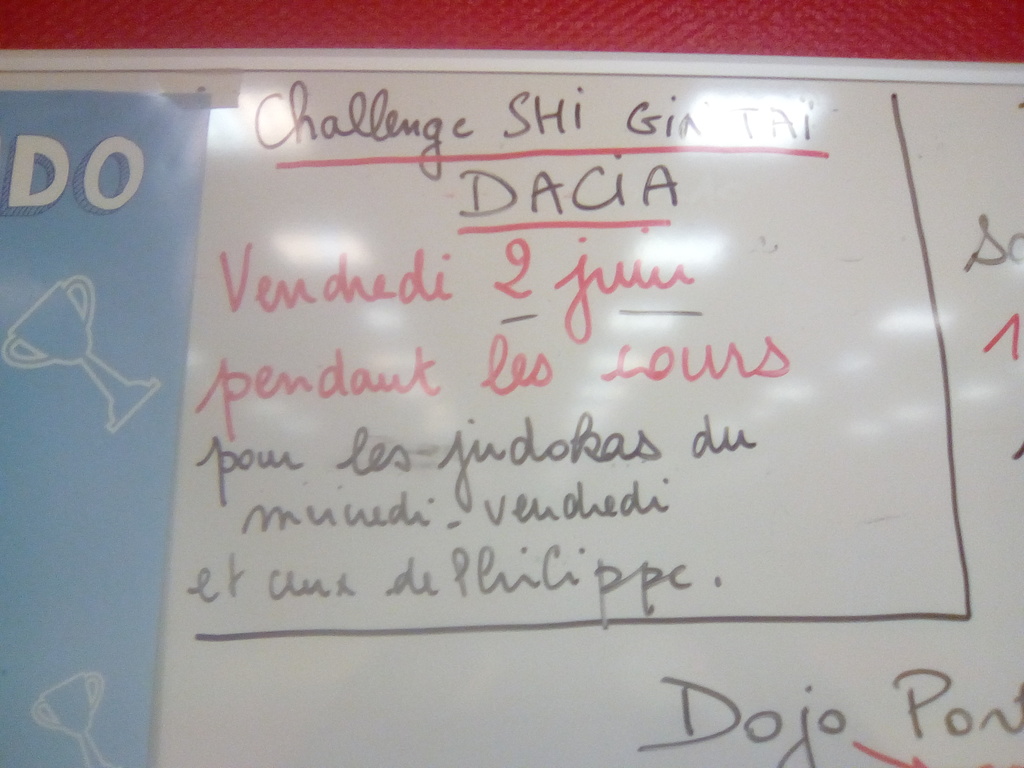 DO
Challenge SHI GiN TAï
DACiA
Vendredi 2 juin
pendant les cours
pour les judokas du
mercredi - vendredi
et ceux de Philippe.
Dojo Pont